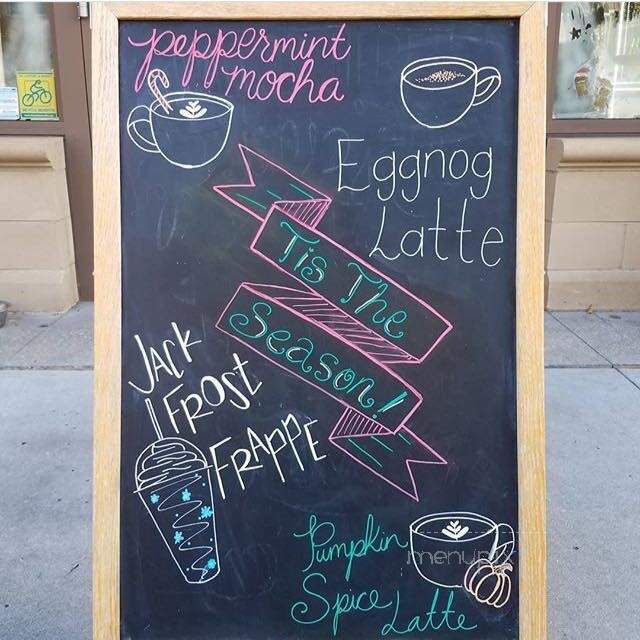 peppermint
mocha
Eggnog
Latte
Tis The
Season!
JACK
FROST
FRAPPE
Pumpkin
Spice Latte